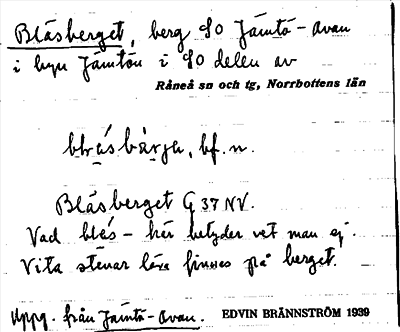 Blåsberget, berg SO Jämtö-avan
i byn Jämtön i SO delen av
Råneå sn och tg, Norrbottens län
bf. n.
Blåsberget G 37 NV.
Vad blås- här betyder vet man ej.
Vita stenar lära finnas på berget.
Uppg. från Jämtö-avan. EDVIN BRÄNNSTRÖM 1939